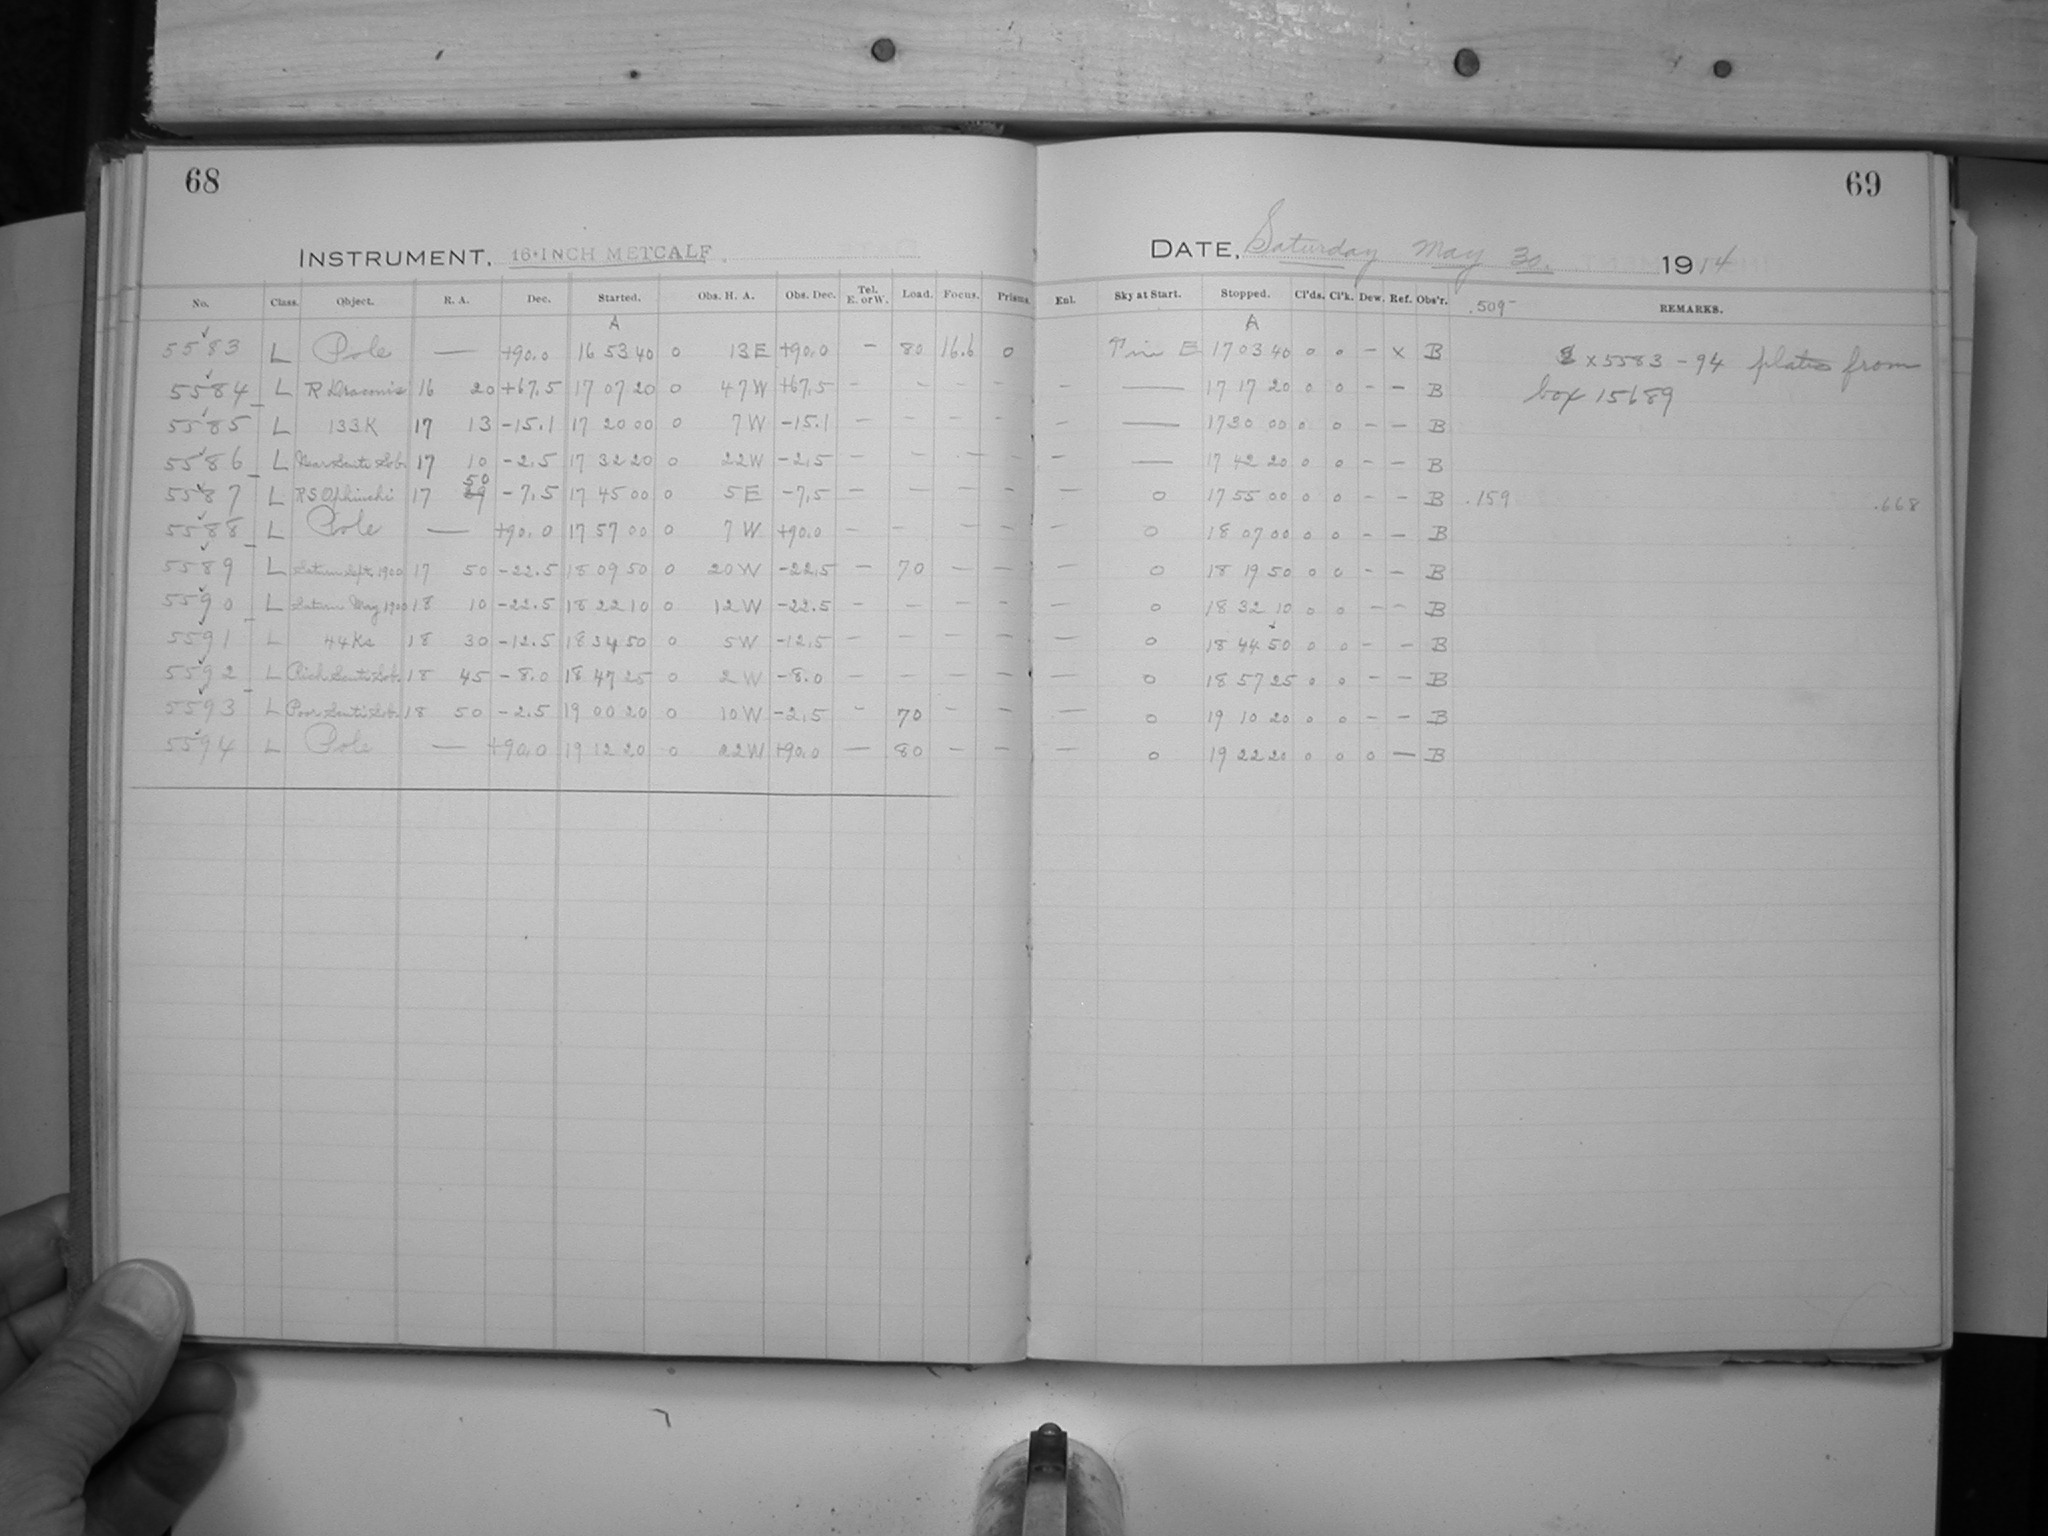 68
69
INSTRUMENT, 16-INCH METCALF
DATE, Saturday May 30. 1914
No. Class. Object. R. A. Dec. Started. Obs. H. A. Obs. Dec. Tel. E. or W. Load. Focus. Prisms. Enl. Sky at Start. Stopped. Cl'ds. Cl'k. Dew. Ref. Obs'r. .509 REMARKS.
A A
5583 L Pole — +90.0 16 53 40 0 13 E +90.0 — 80 16.6 0 17 03 40 0 0 — x B x 5583 - 94 plates from
5584 L R Draconis 16 20 +67.5 17 07 20 0 47 W +67.5 — — — — — — 17 17 20 0 0 — — B box 15689
5585 L 133K 17 13 -15.1 17 20 00 0 7 W -15.1 — — — — — — 17 30 00 0 0 — — B
5586 L 17 10 -2.5 17 32 20 0 22 W -2.5 — — — — — — 17 42 20 0 0 — — B
5587 L RS Ophiuchi 17 50 -7.5 17 45 00 0 5 E -7.5 — — — — — 0 17 55 00 0 0 — — B .159 .668
5588 L Pole — +90.0 17 57 00 0 7 W +90.0 — — — — — 0 18 07 00 0 0 — — B
5589 L Saturn Sept. 1900 17 50 -22.5 18 09 50 0 20 W -22.5 — 70 — — — 0 18 19 50 0 0 — — B
5590 L Saturn May 1900 18 10 -22.5 18 22 10 0 12 W -22.5 — — — — — 0 18 32 10 0 0 — — B
5591 L 44Ks 18 30 -12.5 18 34 50 0 5 W -12.5 — — — — — 0 18 44 50 0 0 — — B
5592 L Rich 18 45 -8.0 18 47 25 0 2 W -8.0 — — — — — 0 18 57 25 0 0 — — B
5593 L Poor 18 50 -2.5 19 00 20 0 10 W -2.5 — 70 — — — 0 19 10 20 0 0 — — B
5594 L Pole — +90.0 19 12 20 0 22 W +90.0 — 80 — — — 0 19 22 20 0 0 0 — B